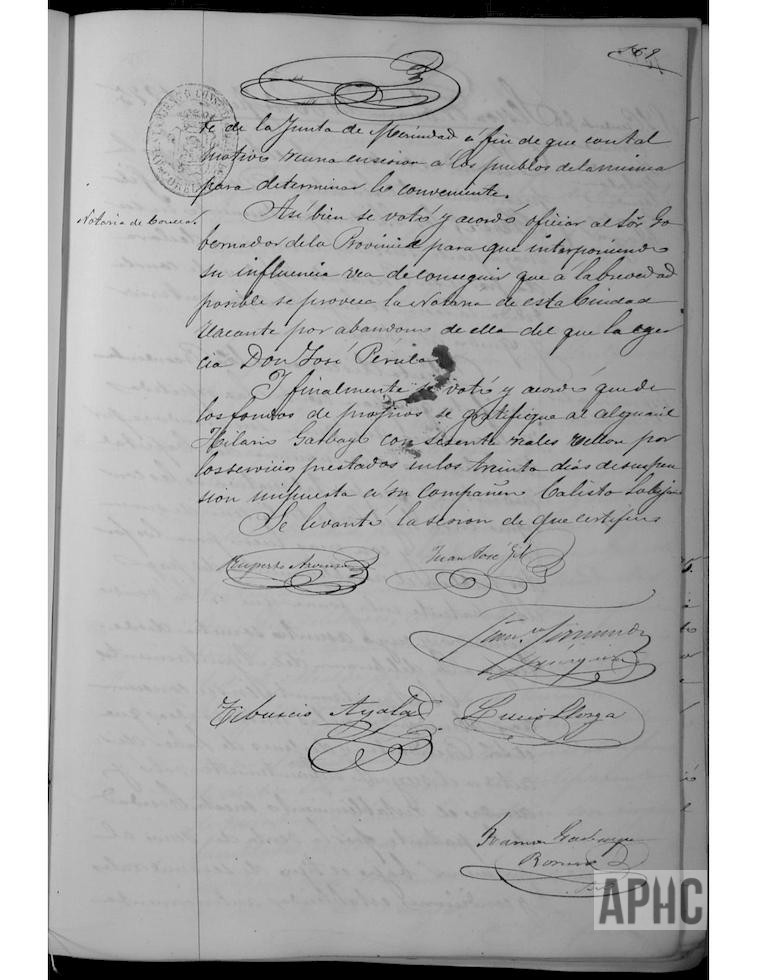 te de la Junta de Merindad á fin de que con tal
motivo reuna en sesion á los pueblos de la misma
para determinar lo conveniente.
Notaria de
Asi bien se votó y acordó oficiar al Sôr Go
bernador de la Provincia para que interponiendo
su influencia vea de conseguir que á la brevedad
posible se provea la Notaria de esta Ciudad
vacante por abandono de ella del que la ejer
cia Don José
Y finalmente se votó y acordó que de
los fondos de propios se gratifique al alguacil
Hilario Garbayo con sesenta reales vellon por
los servicios prestados en los treinta dias de suspen
sion impuesta á su compañero Calisto
Se levantó la sesion de que certifico
Ruperto
Juan José Gil
Tiburcio Ayala
Lucio Llorga
Ramon
APHC